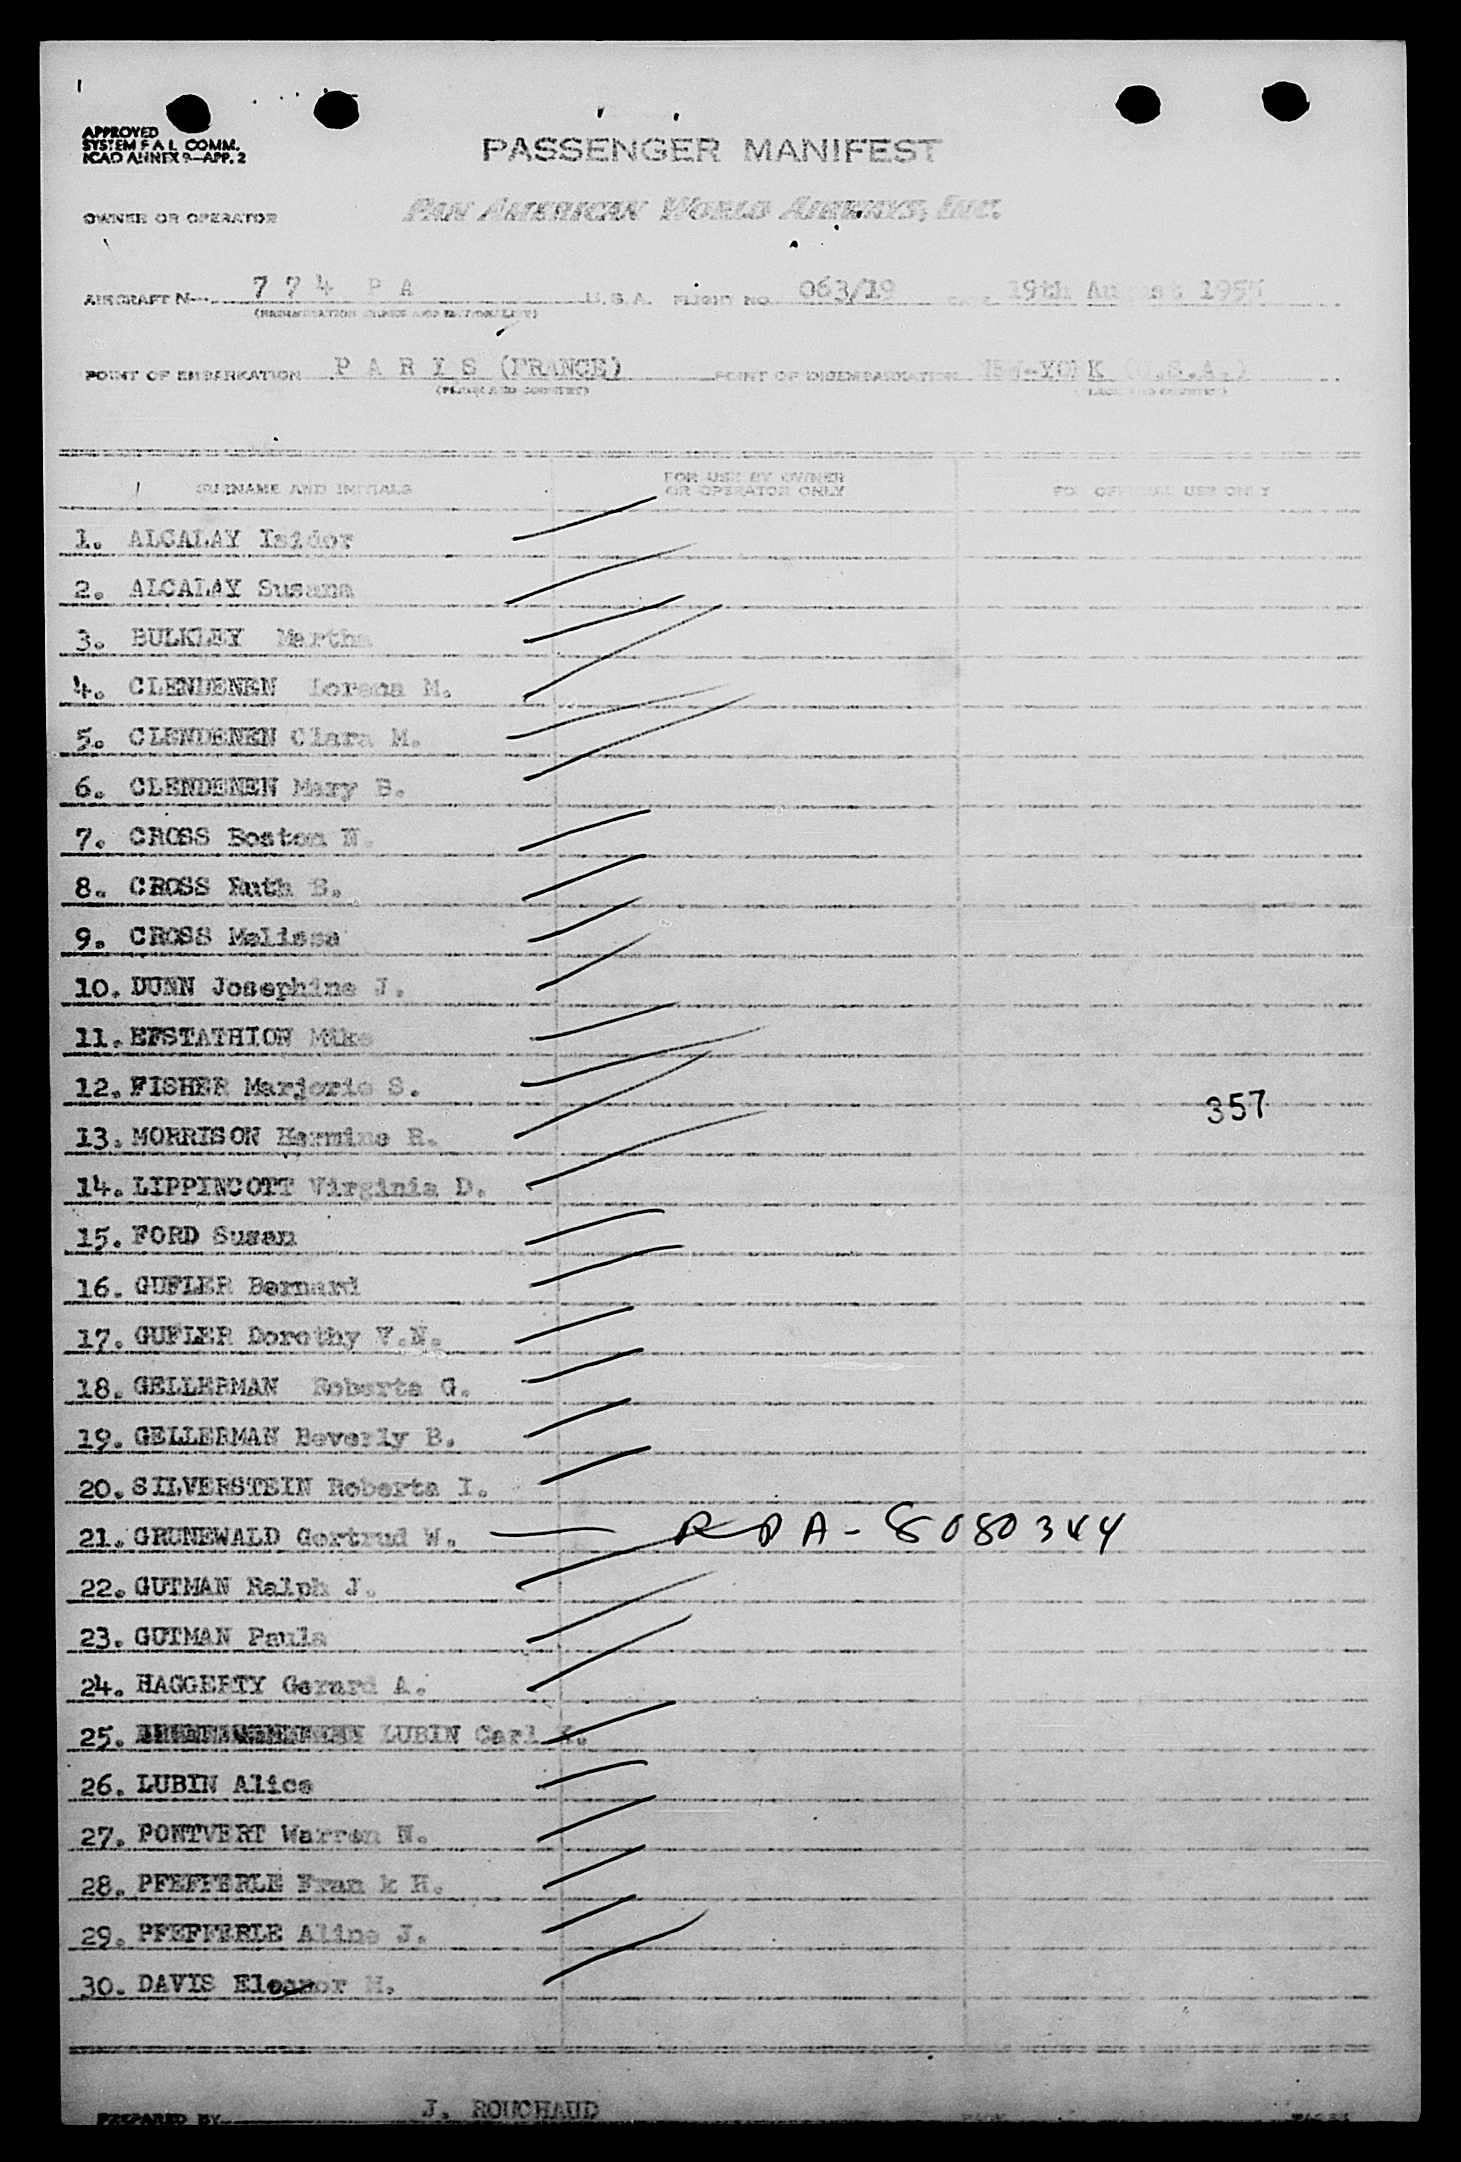 APPROVED
SYSTEM F A L COMM.
ICAO ANNEX 9—APP. 2
PASSENGER MANIFEST
OWNER OR OPERATOR PAN AMERICAN WORLD AIRWAYS, INC.
AIRCRAFT N 774 PA U.S.A. FLIGHT NO 063/19 DATE 19th August
(REGISTRATION MARKS AND NATIONALITY)
POINT OF EMBARKATION P A R I S (FRANCE) POINT OF DISEMBARKATION NEW-YORK (U.S.A.)
(PLACE AND COUNTRY) (PLACE AND COUNTRY)
SURNAME AND INITIALS FOR USE BY OWNER OR OPERATOR ONLY FOR OFFICIAL USE ONLY
1. ALCALAY Isidor
2. ALCALAY Susana
3. BULKLEY Martha
4. CLENDENEN Lorena M.
5. CLENDENEN Clara M.
6. CLENDENEN Mary B.
7. CROSS Boston N.
8. CROSS Ruth B.
9. CROSS Melissa
10. DUNN Josephine J.
11. EFSTATHIOW Mike
12. FISHER Marjorie S.
357
13. MORRISON Hermine R.
14. LIPPINCOTT Virginia D.
15. FORD Susan
16. GUFLER Bernard
17. GUFLER Dorothy V.N.
18. GELLERMAN Roberta G.
19. GELLERMAN Beverly B.
20. SILVERSTEIN Roberta I.
21. GRUNEWALD Gertrud W. RPA-8080344
22. GUTMAN Ralph J.
23. GUTMAN Paula
24. HAGGERTY Gerard A.
25. LUBIN Carl K.
26. LUBIN Alice
27. PONTVERT Warren N.
28. PFEFFERLE Fran k H.
29. PFEFFERLE Aline J.
30. DAVIS Eleanor H.
PREPARED BY J. ROUCHAUD